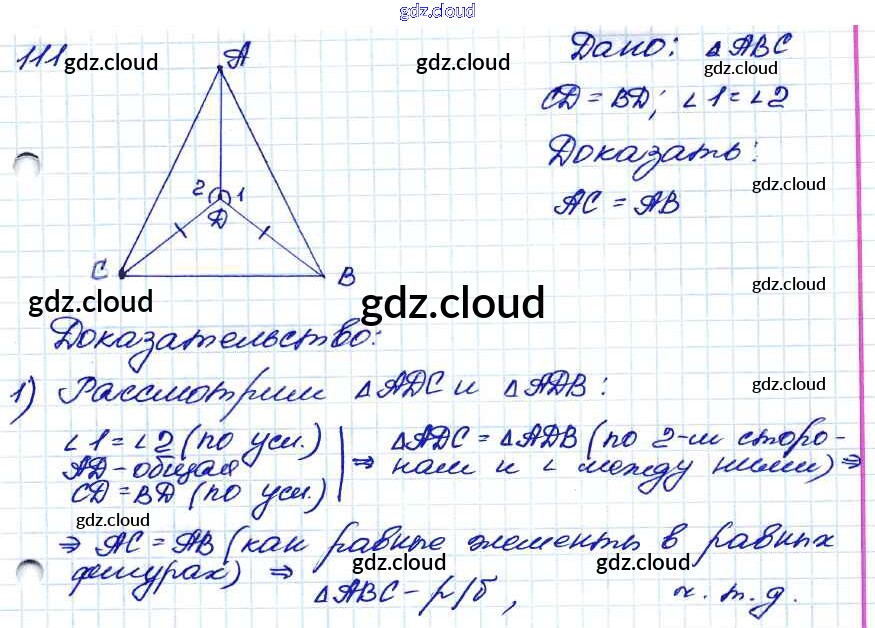 gdz.cloud
111 gdz.cloud
A
gdz.cloud
Дано: △ABC
gdz.cloud
CD = BD; ∠1 = ∠2
Доказать:
gdz.cloud
AC = AB
2 1
D
C B
gdz.cloud
gdz.cloud
gdz.cloud
Доказательство:
1) Рассмотрим △ADC и △ADB:
gdz.cloud
∠1 = ∠2 (по усл.)
AD - общая
CD = BD (по усл.)
⇒ △ADC = △ADB (по 2-м сторо-
нам и ∠ между ними) ⇒
gdz.cloud
⇒ AC = AB (как равные элементы в равных
фигурах) ⇒
gdz.cloud
gdz.cloud
gdz.cloud
△ABC - р/б, ч.т.д.